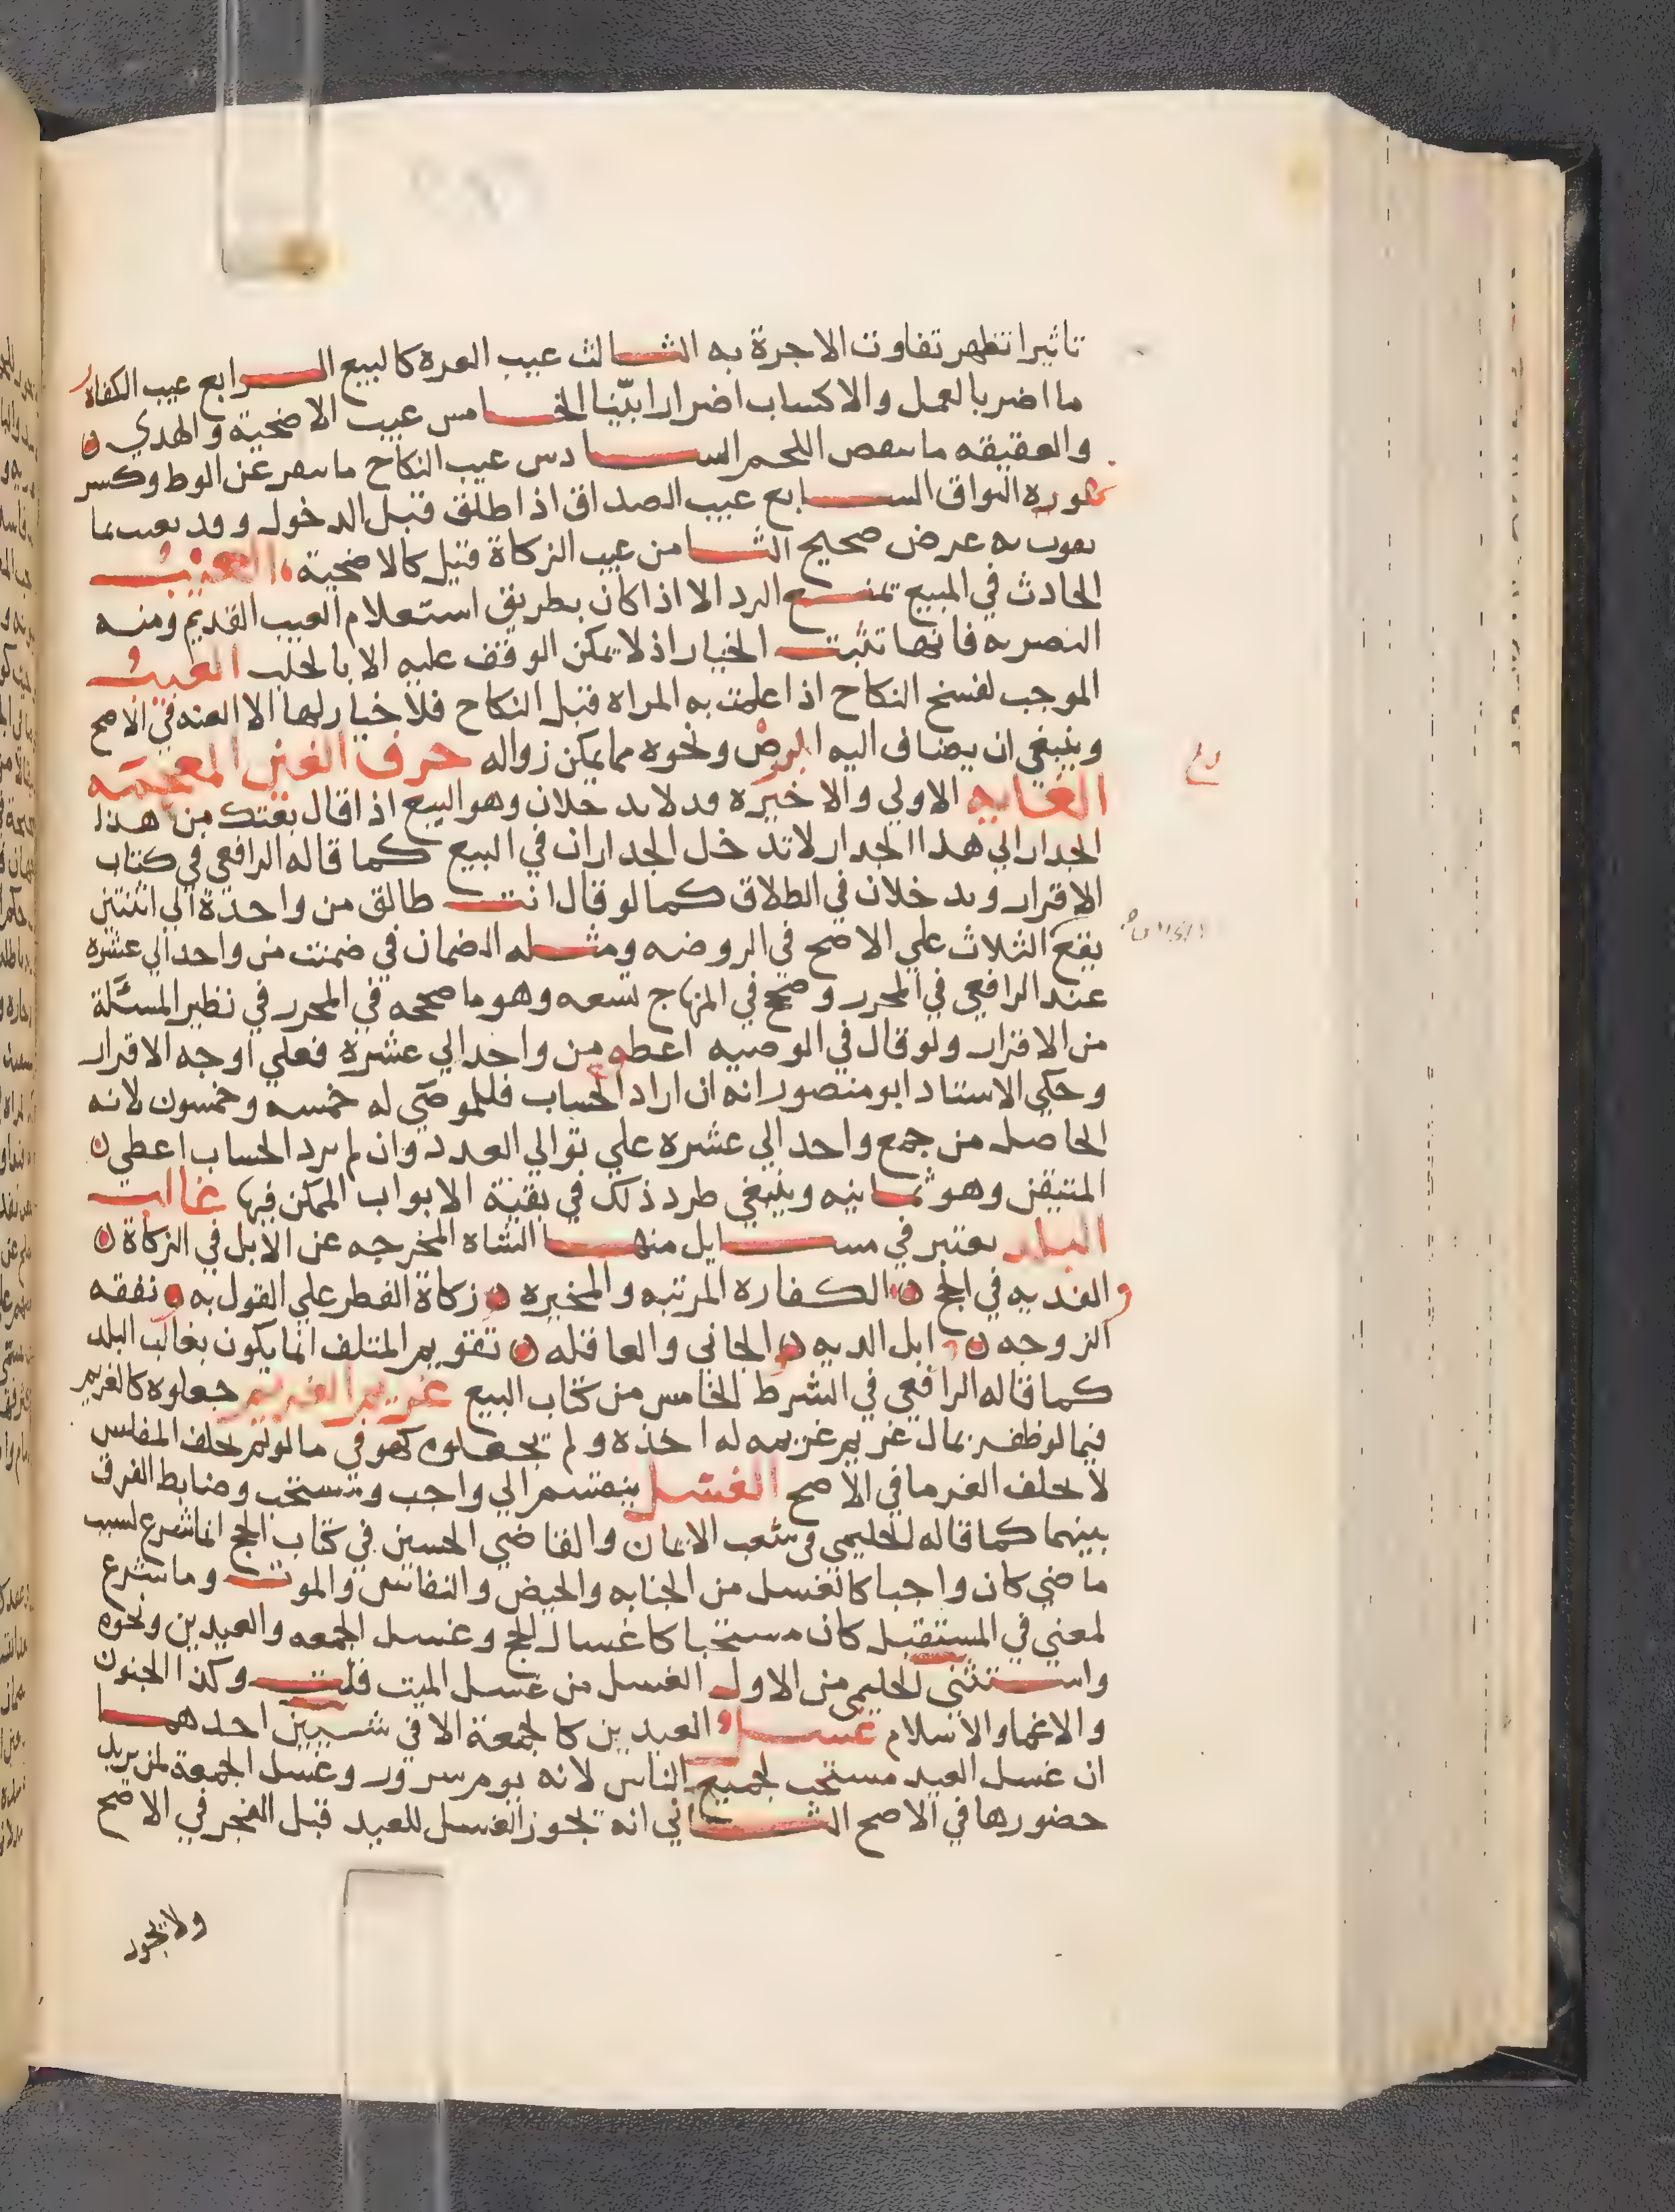 تاثيرا تظهر تفاوت الاجرة به الثالث عيب الغرة كالبيع الرابع عيب الكفارة
ما اضر بالعمل والاكساب اضرارا بيّنا الخامس عيب الاضحية والهدي
والعقيقه ما ينقص اللحم السادس عيب النكاح ما ينفر عن الوطء وكسر
سورة التواق السابع عيب الصداق اذا طلق قبل الدخول وقد تعيب بما
يفوت به غرض صحيح الثامن عيب الزكاة قيل كالاضحية العيب
الحادث في المبيع يمنع الرد الا اذا كان بطريق استعلام العيب القديم ومنه
التصريه فانها تثبت الخيار اذ لا يمكن الوقف عليه الا بالحلب العيب
الموجب لفسخ النكاح اذا علمت به المراه قبل النكاح فلا خيار لها الا العنه في الاصح
وينبغي ان يضاف اليه البرص ونحوه مما يمكن زواله حرف الغين المعجمه
الغايه الاولي والاخيره قد لا يدخلان وهو البيع اذا قال بعتك من هذا
الجدار الي هذا الجدار لا تدخل الجداران في البيع كما قاله الرافعي في كتاب
الاقرار ويدخلان في الطلاق كما لو قال انت طالق من واحدة الي اثنتين
يقع الثلاث علي الاصح في الروضه ومثله الضمان في ضمنت من واحد الي عشره
عند الرافعي في المحرر وصحح في المنهاج تسعه وهو ما صححه في المحرر في نظير المسئلة
من الاقرار ولو قال في الوصيه اعطوه من واحد الي عشره فعلي اوجه الاقرار
وحكي الاستاد ابو منصور انه ان اراد الحساب فللموصي له خمسه وخمسون لانه
الحاصل من جمع واحد الي عشره علي توالي العدد وان لم يرد الحساب اعطي
المتيقن وهو ثمانيه وينبغي طرد ذلك في بقية الابواب الممكن فيها غالب
البلد يعتبر في مسايل منها الشاه المخرجه عن الابل في الزكاة
والفديه في الحج الكفاره المرتبه والمخيره زكاة الفطر علي القول به نفقه
الزوجه ابل الديه الجاني والعاقله تقويم المتلف انما يكون بغالب البلد
كما قاله الرافعي في الشرط الخامس من كتاب البيع غريم الغريم جعلوه كالغريم
فيما لو ظفر بمال غريم غريمه له اخذه ولم يجعلوه كهو في ما لو لم يحلف المفلس
لا يحلف الغرما في الاصح الغسل ينقسم الي واجب ومستحب وضابط الفرق
بينهما كما قاله الحليمي في شعب الايمان والقاضي الحسين في كتاب الحج انما شرع لسبب
ماضي كان واجبا كالغسل من الجنابه والحيض والنفاس والموت وما شرع
لمعني في المستقبل كان مستحبا كاغسال الحج وغسل الجمعه والعيدين ونحوه
واستثني الحليمي من الاول الغسل من غسل الميت قلت وكذا الجنون
والاغما والاسلام غسل العيدين كالجمعة الا في شييين احدهما
ان غسل العيد مستحب لجميع الناس لانه يوم سرور وغسل الجمعة لمن يريد
حضورها في الاصح الثاني انه يجوز الغسل للعيد قبل الفجر في الاصح
ولا يجوز